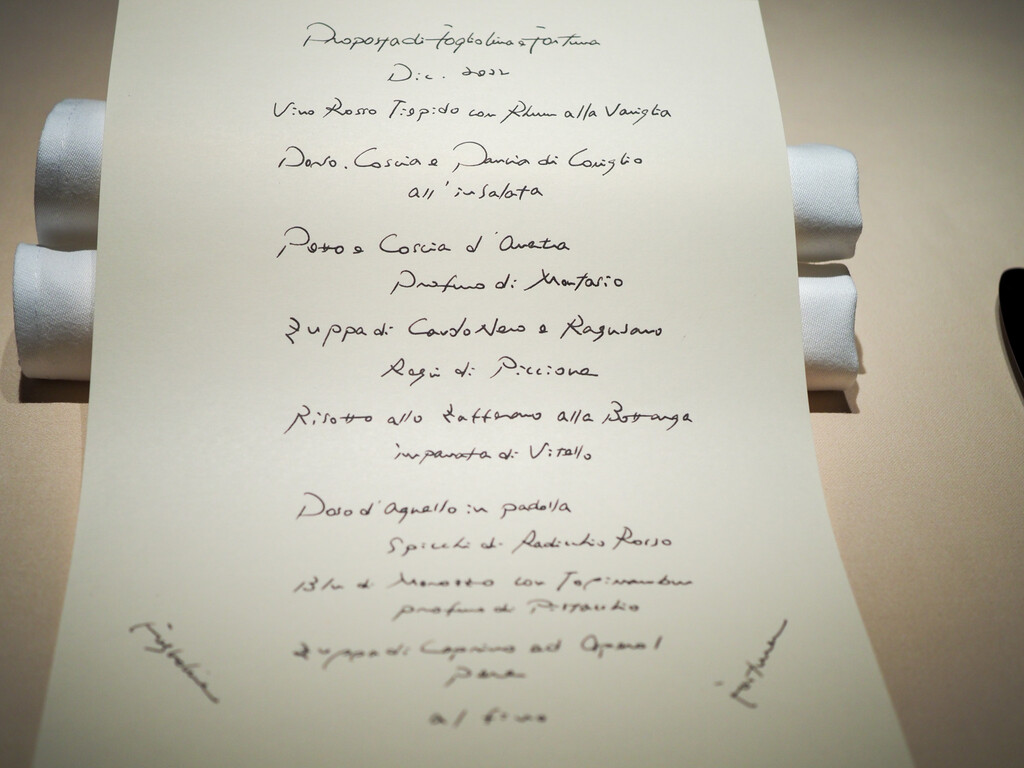 Proposta di fogliolina e fortuna
Dic. 2022
Vino Rosso Tiepido con Rhum alla Vaniglia
Dorso. Coscia e Pancia di Coniglio
all'insalata
Petto e Coscia d'Anatra
Profumo di Montasio
Zuppa di Cavolo Nero e Ragusano
Ragù di Piccione
Risotto allo Zafferano alla Bottarga
impanata di Vitello
Dorso d'agnello in padella
Spicchi di Radicchio Rosso
Blu di con Topinambur
profumo di Pistacchio
Zuppa di Caprino ed
Pane
al
fogliolina
fortuna